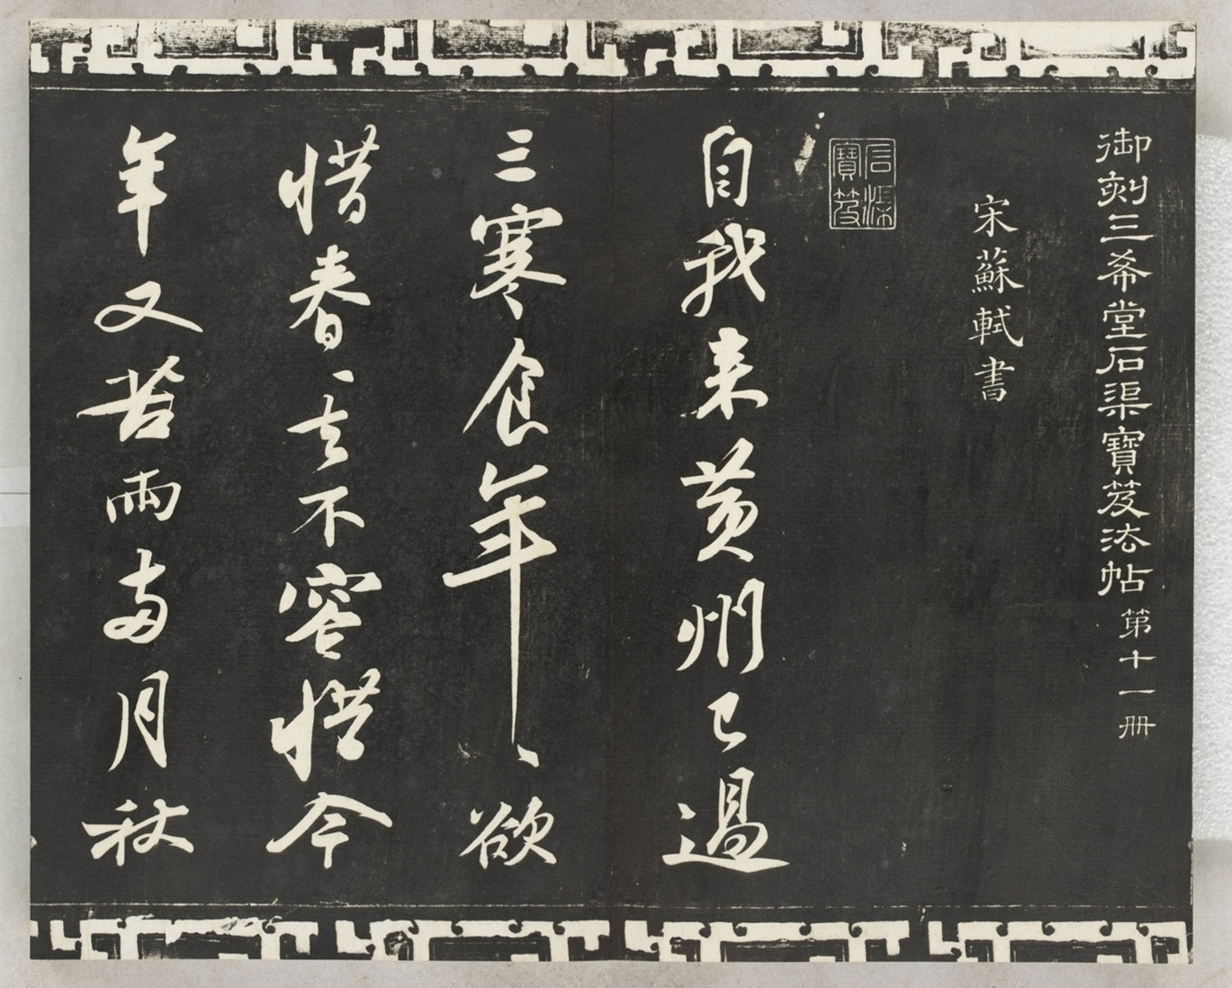 御刻三希堂石渠寶笈法帖第十一册
宋蘇軾書
石渠寶笈
自我来黄州已過
三寒食年〻欲
惜春〻去不容惜今
年又苦雨两月秋